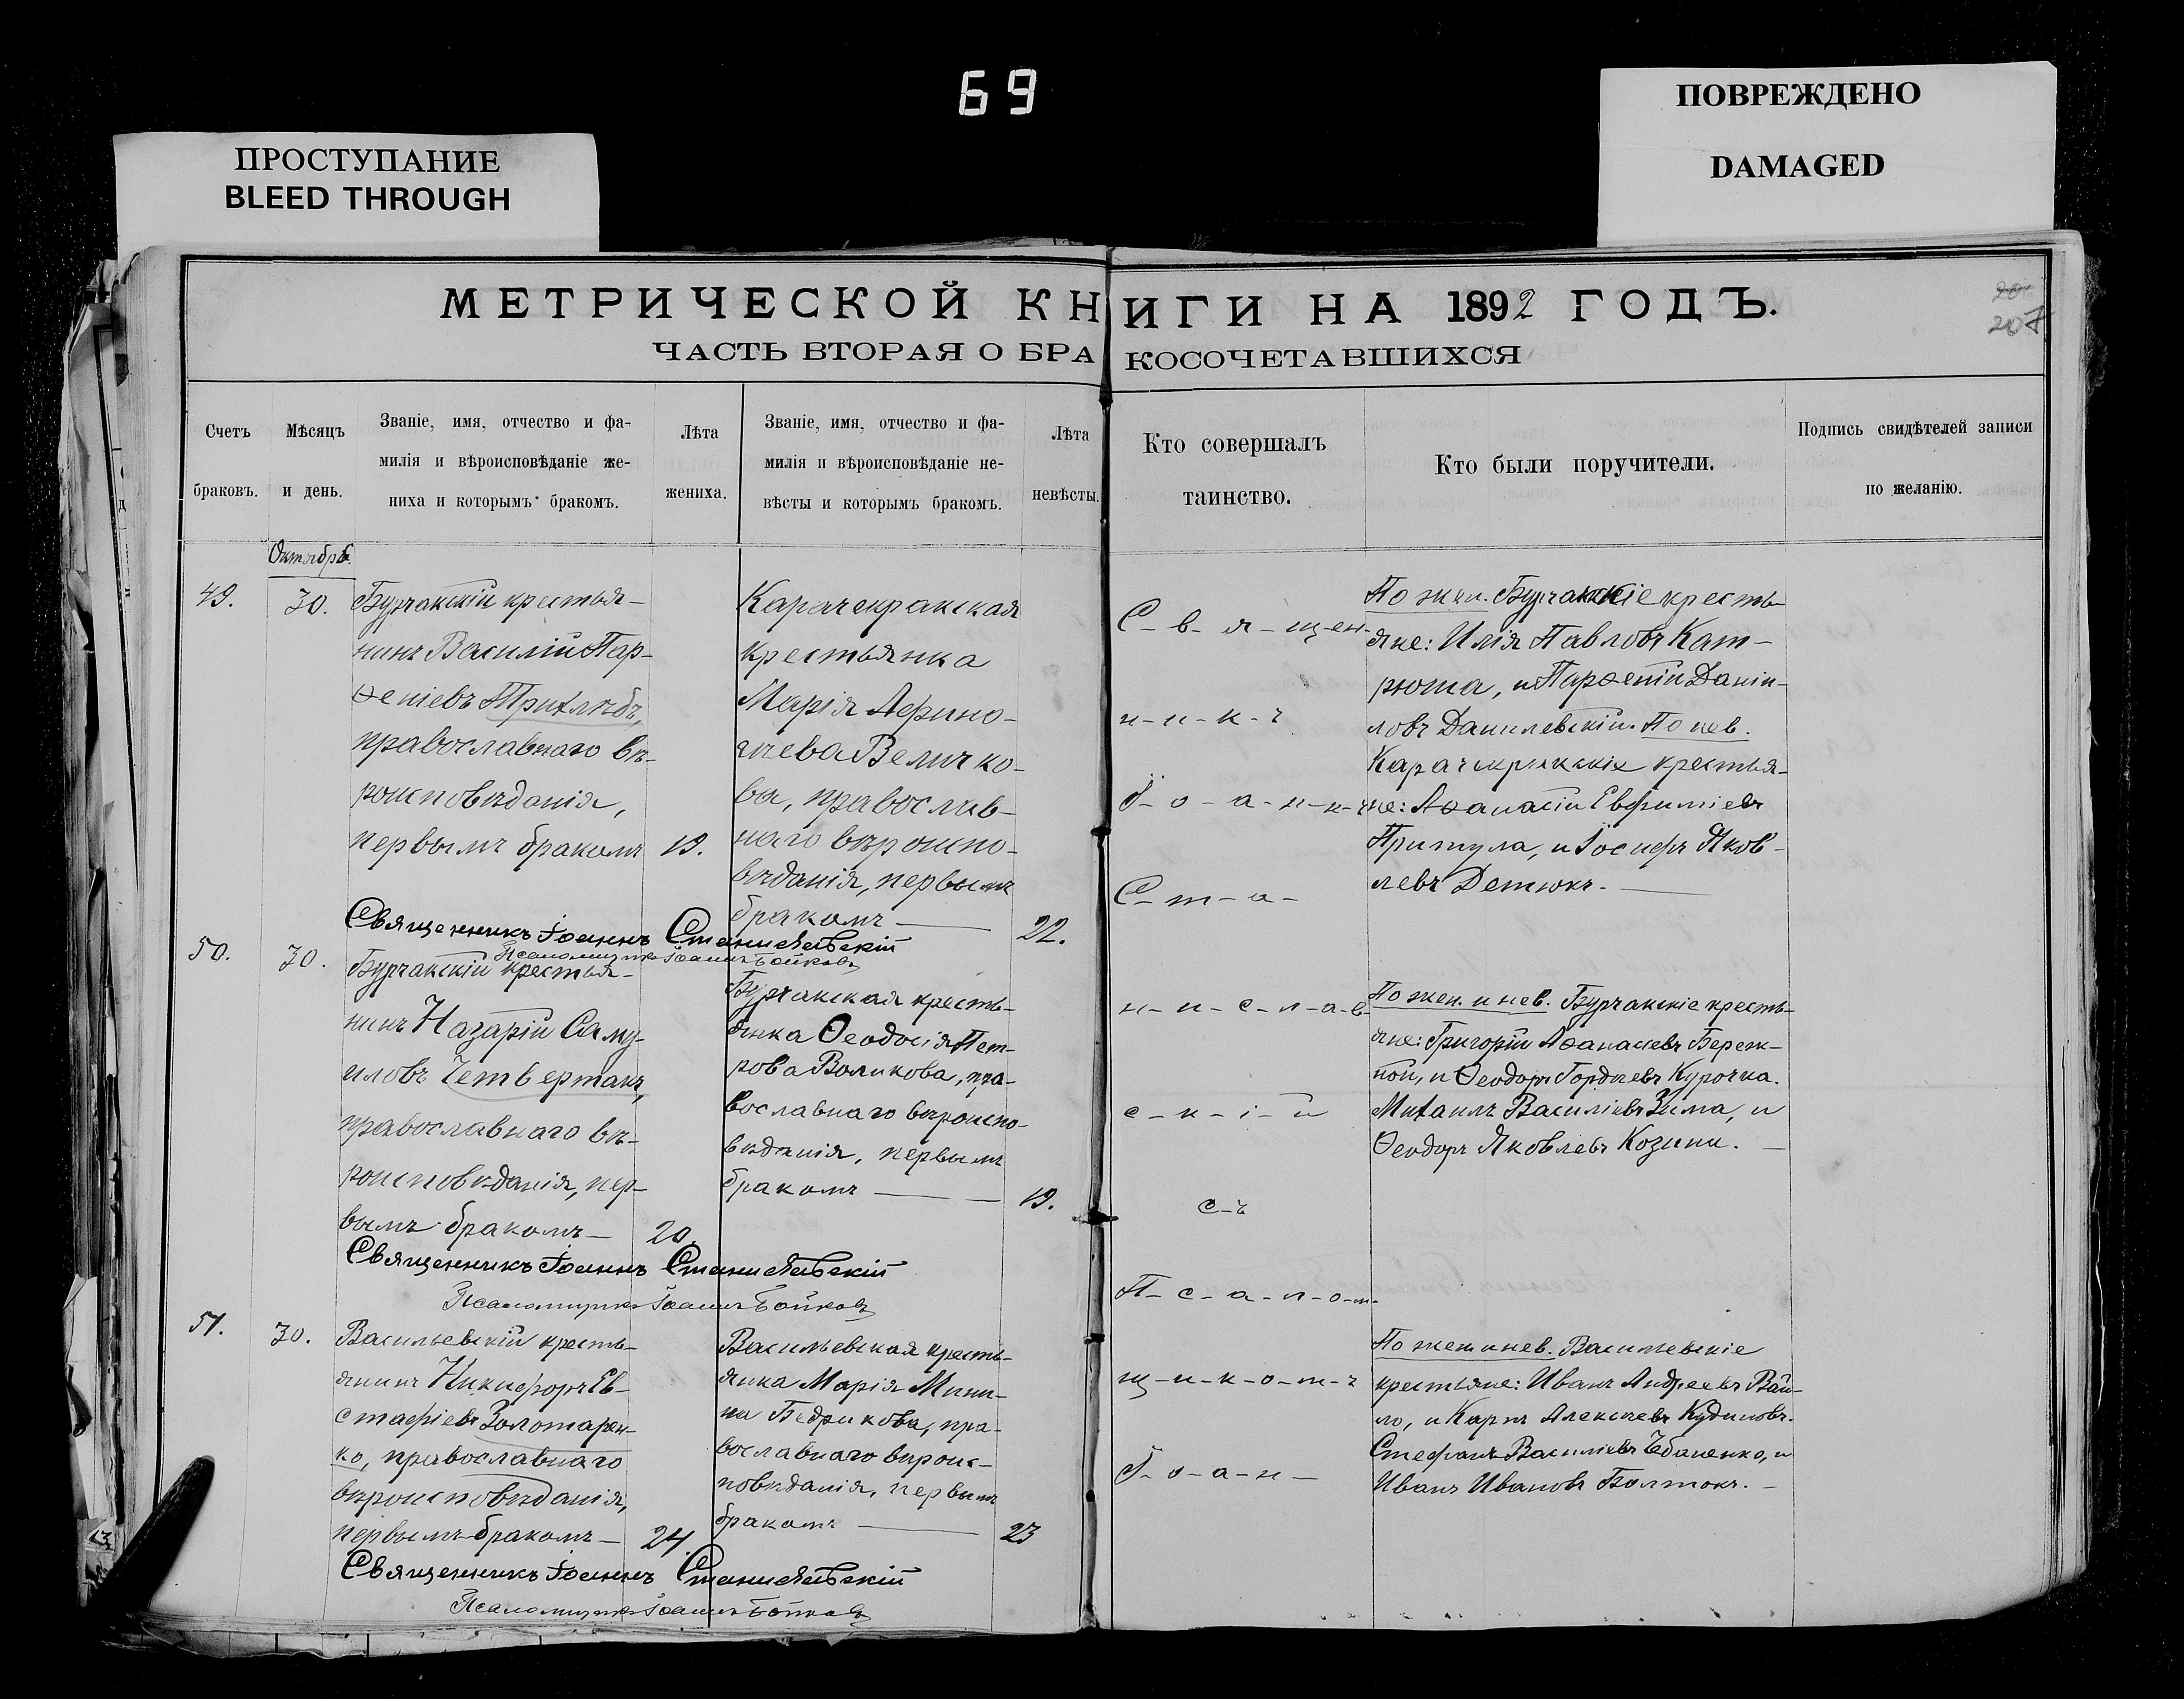 69
ПРОСТУПАНИЕ
BLEED THROUGH
ПОВРЕЖДЕНО
DAMAGED
МЕТРИЧЕСКОЙ КНИГИ НА 1892 ГОДЪ.
20
207
ЧАСТЬ ВТОРАЯ О БРАКОСОЧЕТАВШИХСЯ
Счетъ
браковъ.
Мѣсяцъ
и день.
Званіе, имя, отчество и фа-
милія и вѣроисповѣданіе же-
ниха и которымъ бракомъ.
Лѣта
жениха.
Званіе, имя, отчество и фа-
милія и вѣроисповѣданіе не-
вѣсты и которымъ бракомъ.
Лѣта
невѣсты.
Кто совершалъ
таинство.
Кто были поручители.
Подпись свидѣтелей записи
по желанію.
Октябрь
49.
30.
Бурчакскій крестья-
нинъ Василій Пар-
ѳеніевъ Трихлѣбъ,
православнаго вѣ-
роисповѣданія,
первымъ бракомъ
19.
Карачекракская
крестьянка
Марія
Величко-
ва, православ-
наго вѣроиспо-
вѣданія, первымъ
бракомъ —
22.
С-в-я-щен-
н-и-к-ъ
І-о-а-н-н-ъ
С-т-а-
н-и-с-л-а-в-
с-к-і-й
с-ъ
П-с-а-л-о-м-
щ-и-к-о-м-ъ
І-о-а-н-
По жен. Бурчакскіе кресть-
яне: Илія Павловъ Кат-
рюша, и Парѳеній Даніи-
ловъ Данилевскій. По нев.
Карачекракскіе крестья-
не: Аѳанасій Евфиміевъ
Притула, и Іосифъ Яков-
левъ Детюкъ. —
Священникъ Іоаннъ Станиславскій
Псаломщикъ Іоаннъ Бойковъ
50.
30.
Бурчакскій крестья-
нинъ Назарій Саму-
иловъ Четвертакъ,
православнаго вѣ-
роисповѣданія, пер-
вымъ бракомъ —
20.
Бурчакская кресть-
янка Ѳеодосія Пет-
рова Воликова, пра-
вославнаго вѣроиспо-
вѣданія, первымъ
бракомъ —
19.
По жен. и нев. Бурчакскіе кресть-
яне: Григорій Аѳанасіевъ Береж-
ной, и Ѳеодоръ Гордіевъ Курочка.
Михаилъ Василіевъ Зима, и
Ѳеодоръ Яковлевъ Козини. —
Священникъ Іоаннъ Станиславскій
Псаломщикъ Іоаннъ Бойковъ
51.
30.
Васильевскій кресть-
янинъ Никифоръ Ев-
стафіевъ Золотарен-
ко, православнаго
вѣроисповѣданія,
первымъ бракомъ —
24.
Васильевская кресть-
янка Марія Мини-
на Бедрикова, пра-
вославнаго вѣроис-
повѣданія, первымъ
бракомъ —
23
По жен. и нев. Васильевскіе
крестьяне: Иванъ Андреевъ Вай-
ло, и Карпъ Алексѣевъ Кудиновъ.
Стефанъ Василіевъ и
Иванъ Ивановъ Болтокъ. —
Священникъ Іоаннъ Станиславскій
Псаломщикъ Іоаннъ Бойковъ